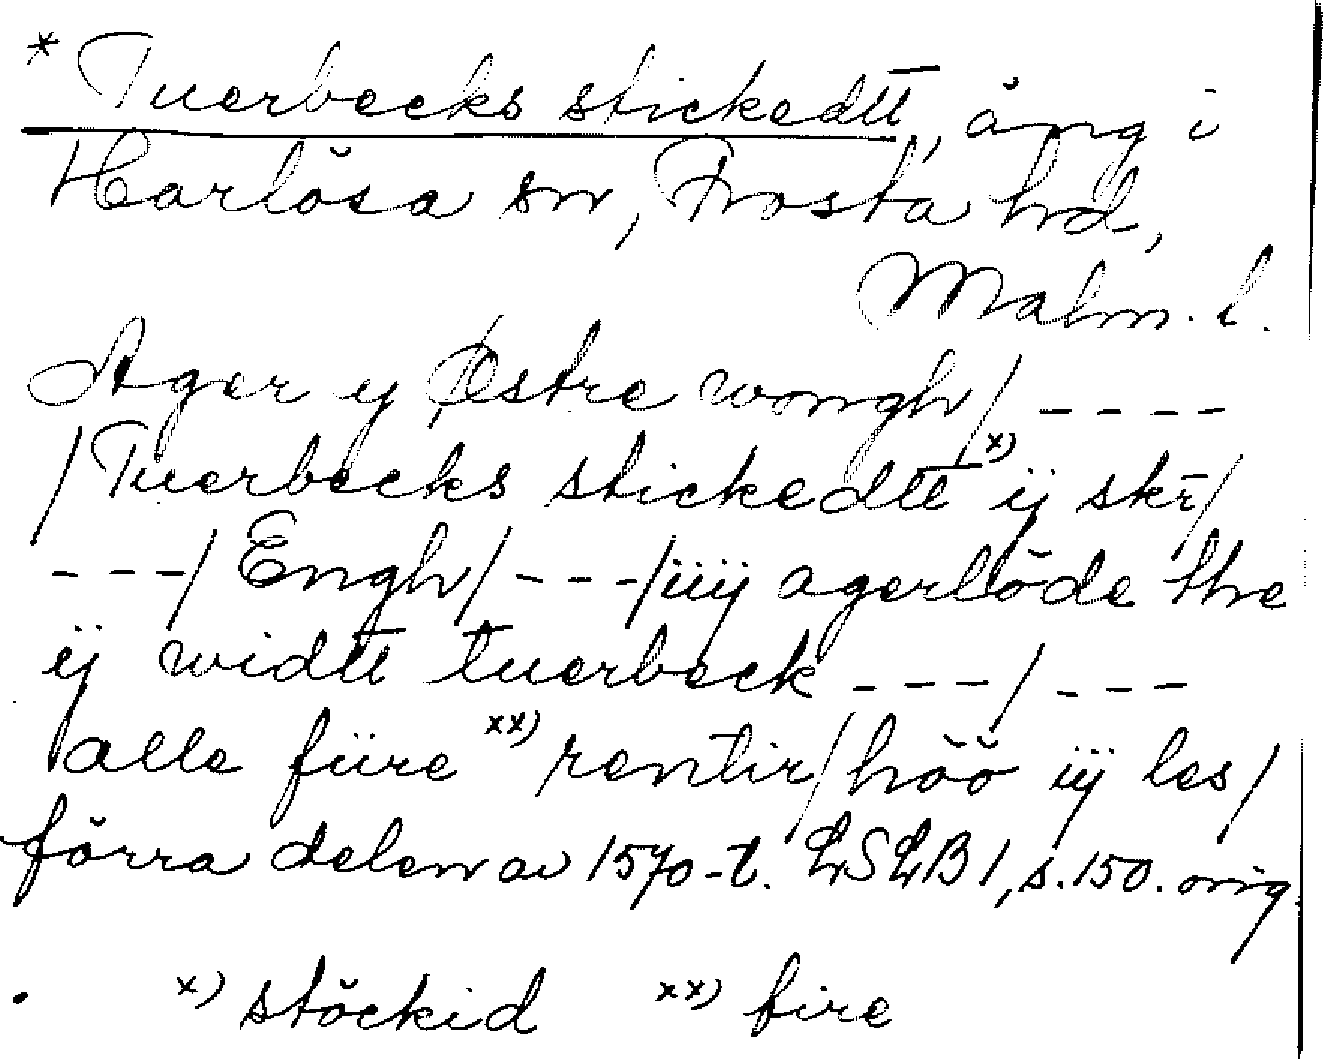 * Tuerbecks stickedtt, äng i
Harlösa sn, Frosta hd,
Malm. l.
Ager y Østre wongh/ ----
/Tuerbecks stickedtt x) ij skr/
---/Engh/---/iiij agerløde thr
ij widtt tuerbeck ---/---
alle füre xx) rentir/höö iij les/
förra delen av 1570-t. LSLB 1, s. 150. orig.
x) stöckid xx) fire